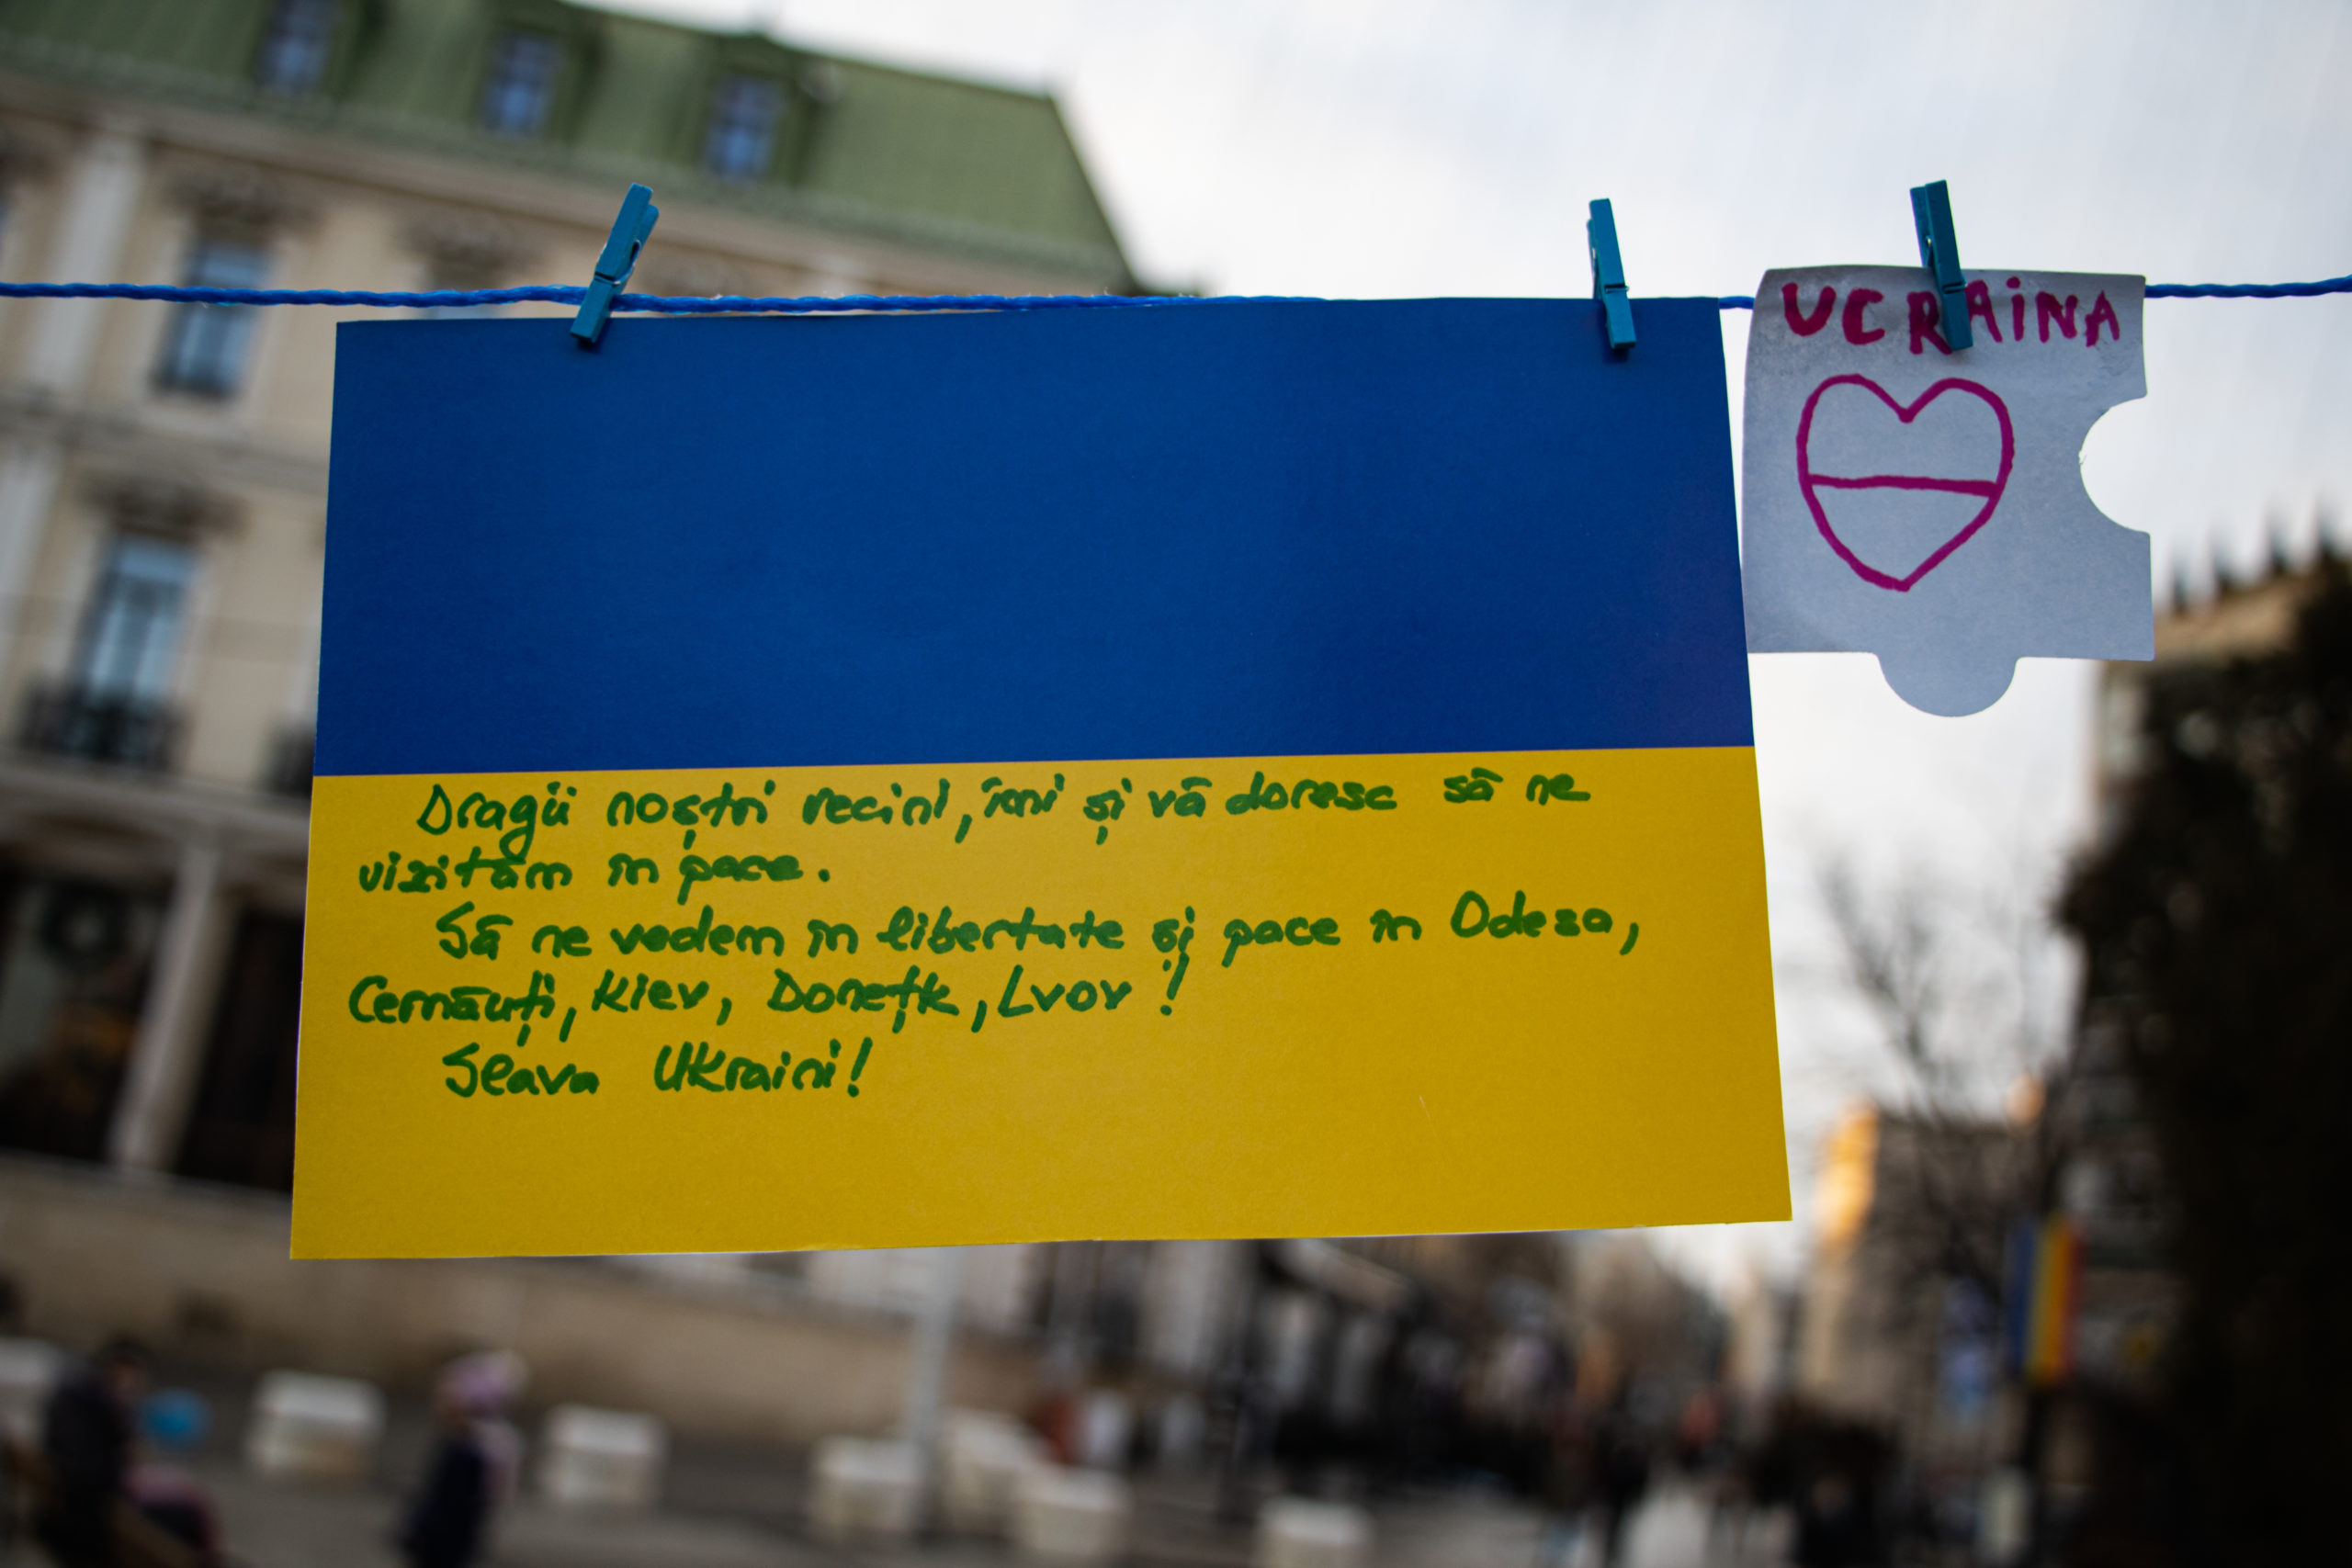 Dragii noștri vecini, îmi și vă doresc să ne
vizităm în pace.
Să ne vedem în libertate și pace în Odesa,
Cernăuți, Kiev, Donețk, Lvov!
Slava Ukraini!
UCRAiNA